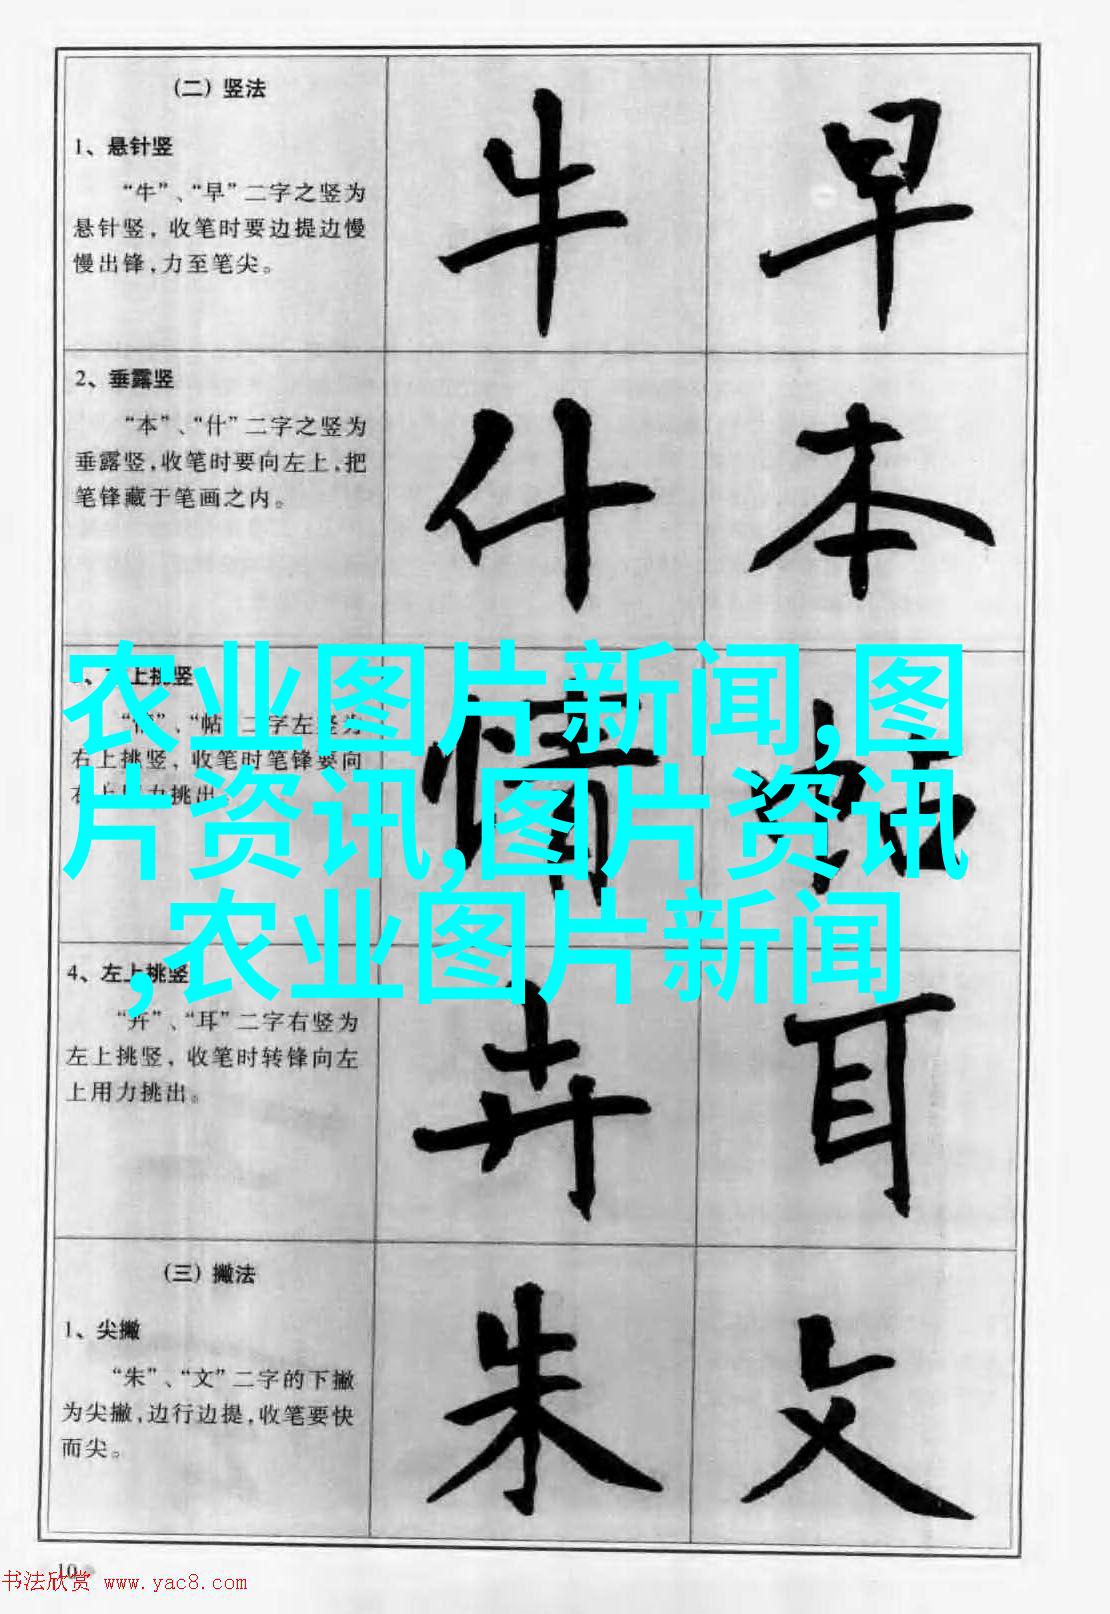 (二) 竖法
1、悬针竖
“牛”、“早”二字之竖为
悬针竖, 收笔时要边提边慢
慢出锋,力至笔尖。
牛 早
2、垂露竖
“本”、“什”二字之竖为
垂露竖,收笔时要向左上,把
笔锋藏于笔画之内。
什 本
上挑竖
“情”、“帖”二字左竖为
右上挑竖, 收笔时笔锋要向
右上用力挑出。
情 帖
农业图片新闻,图
片资讯,图片资讯
,农业图片新闻
4、左上挑竖
“卉”、“耳”二字右竖为
左上挑竖, 收笔时转锋向左
上用力挑出。
卉 耳
(三) 撇法
1、尖撇
“朱”、“文”二字的下撇
为尖撇,边行边提,收笔要快
而尖。
朱 文
10
书法欣赏 www.yac8.com